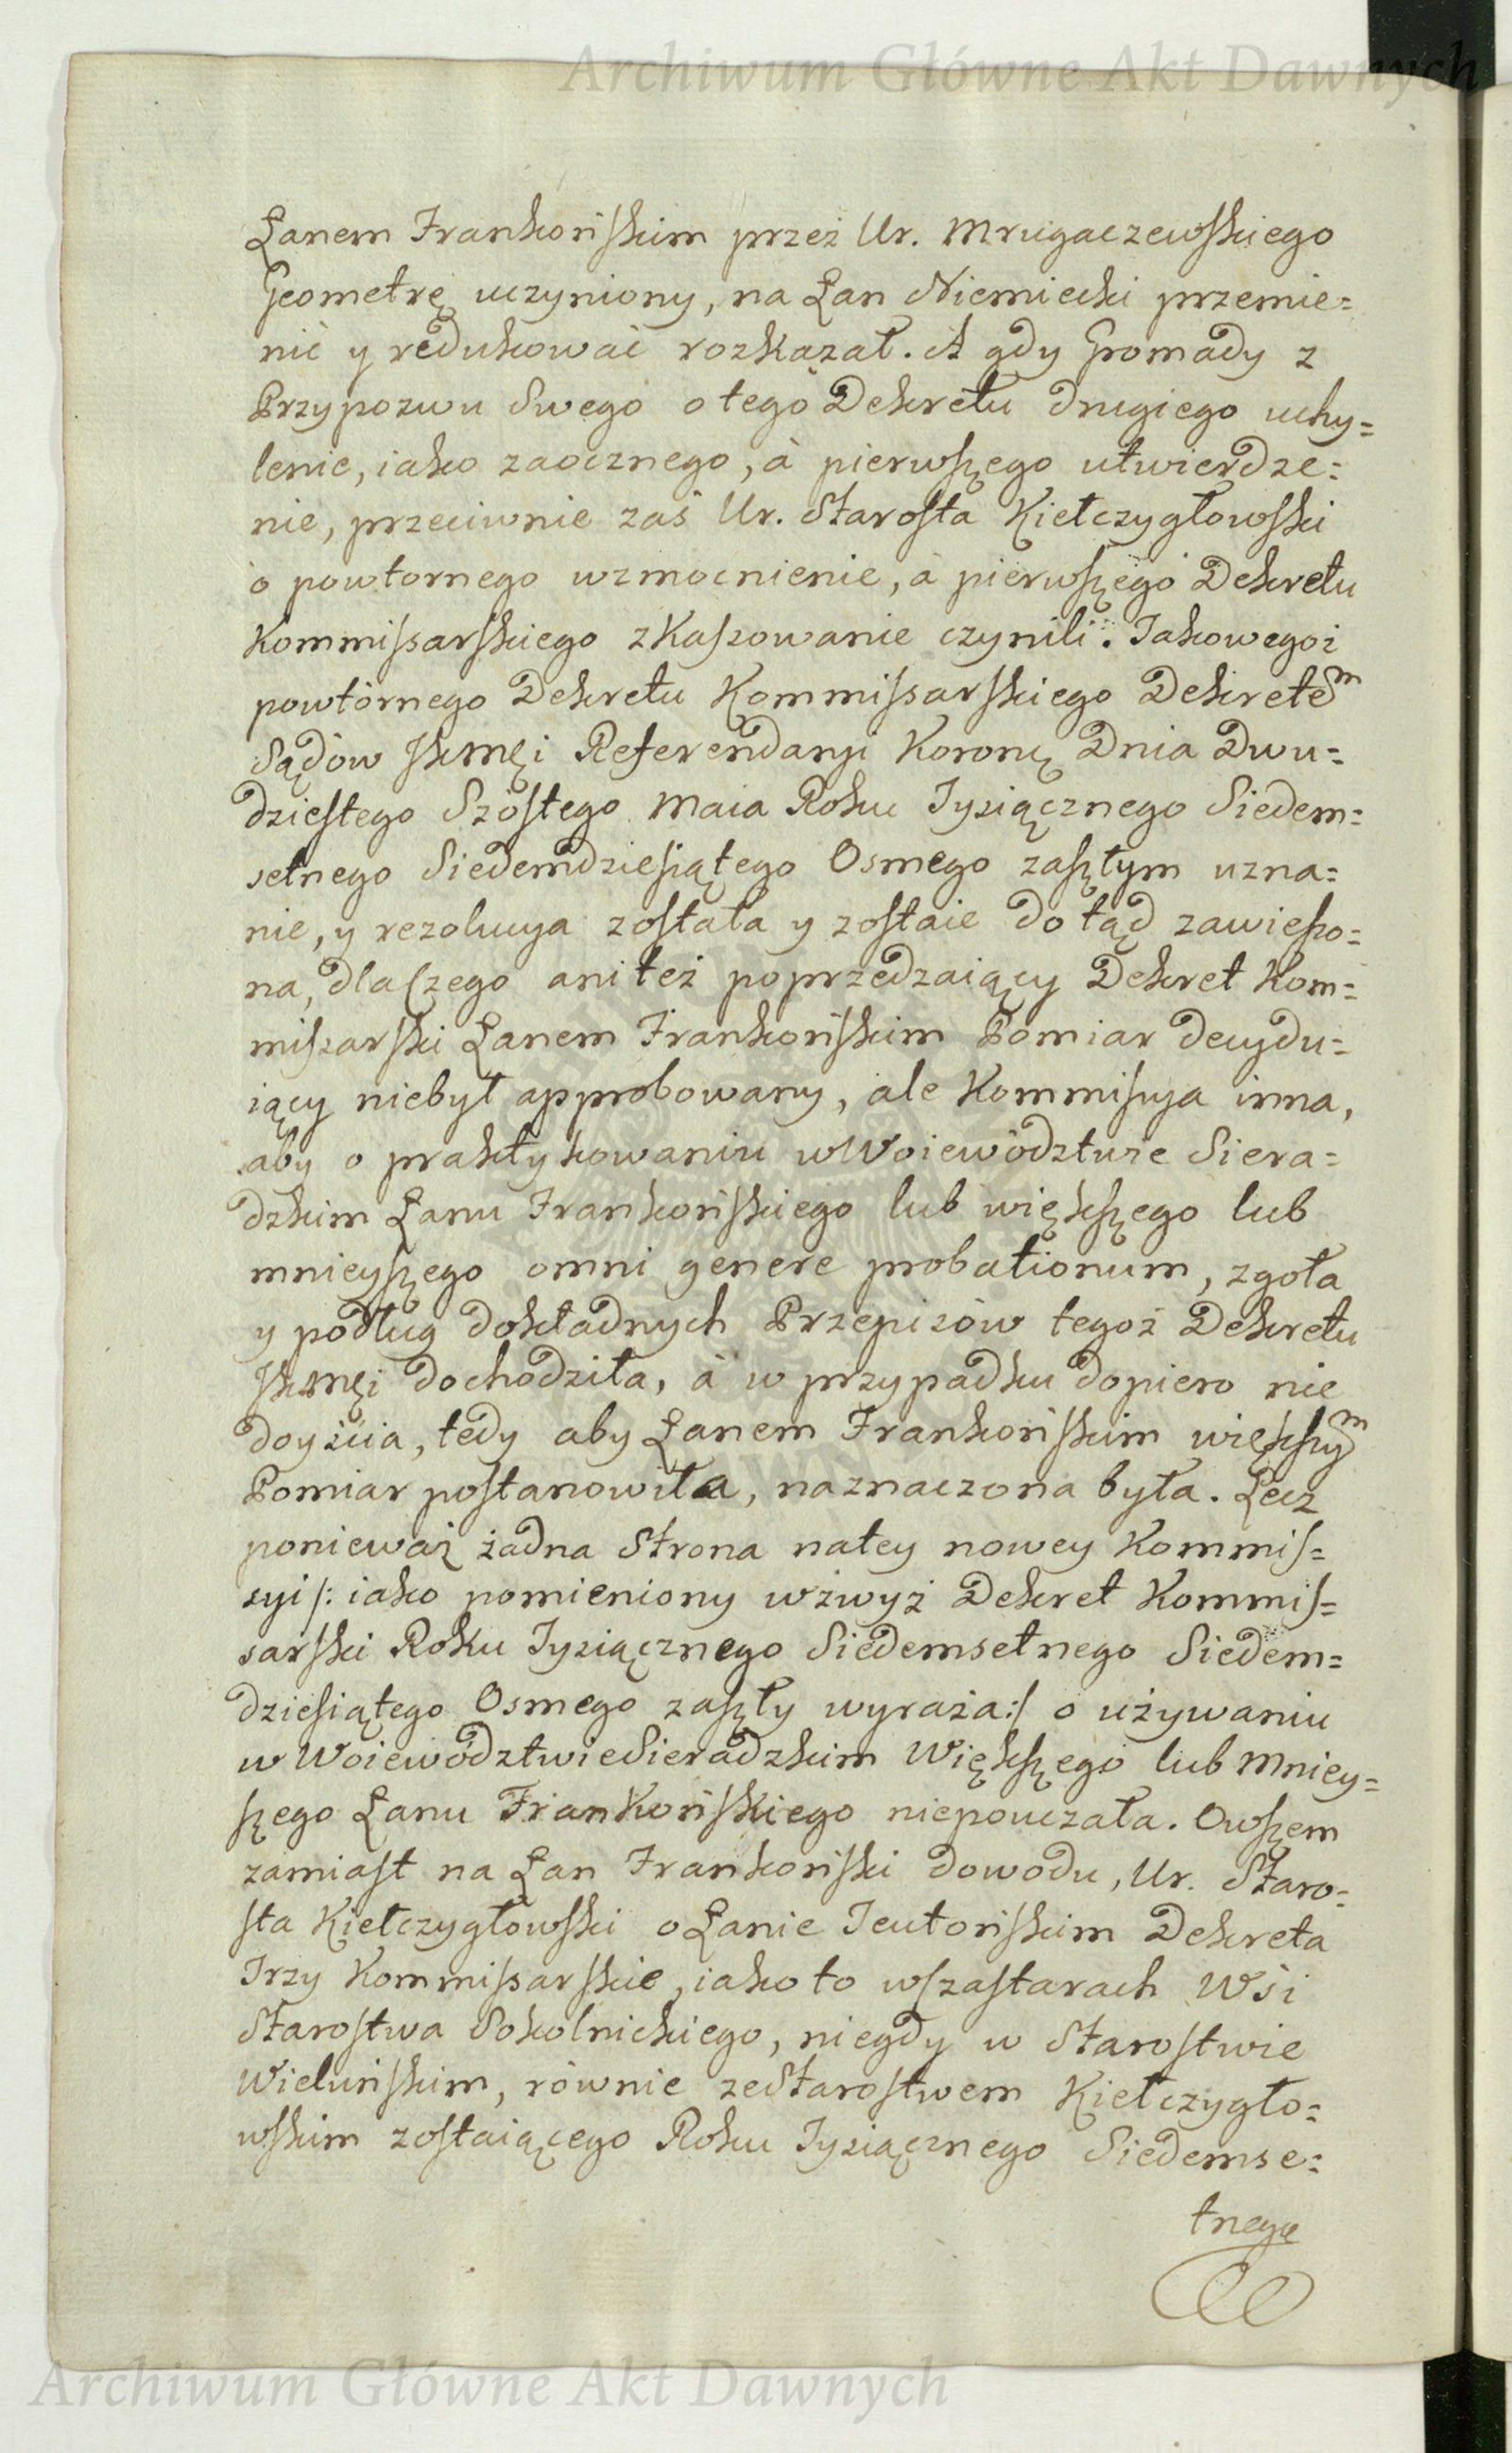 Archiwum Główne Akt Dawnych
Łanem Frankońskim przez Ur. Mrugaczewskiego
Geometrę uczyniony, na Łan Niemiecki przemie=
nić y redukować rozkazał. A gdy Gromady z
Przypozwu Swego o tego Dekretu drugiego uchy=
lenie, iako zaocznego, à pierwszego utwierdze=
nie, przeciwnie zaś Ur. Starosta Kiełczygłowski
o powtornego wzmocnienie, à pierwszego Dekretu
Kommissarskiego zkassowanie czynili. Jakowegoż
powtórnego Dekretu Kommissarskiego Dekretem
Sądów Referendaryi Koronę Dnia Dwu=
dziestego Szóstego Maia Roku Tysiącznego Siedem=
setnego Siedemdziesiątego Osmego zaszłym uzna=
nie, y rezolucya została y zostaie do tąd zawieszo=
na, dlaczego ani też poprzedzaiący Dekret Kom=
missarski Łanem Frankońskim Pomiar decydu=
iący niebył approbowany, ale Kommissya inna,
aby o praktykowaniu w Woiewództwie Siera=
dzkim Łanu Frankońskiego lub większego lub
mnieyszego omni genere probationum, zgoła
y podług dokładnych Przepisów tegoż Dekretu
dochodziła, à w przypadku dopiero nie
doyścia, tedy aby Łanem Frankońskim większym
Pomiar postanowiła, naznaczona była. Lecz
ponieważ żadna Strona natey nowey Kommis=
syi /: iako pomieniony wzwyż Dekret Kommis=
sarski Roku Tysiącznego Siedemsetnego Siedem=
dziesiątego Osmego zaszły wyraża :/ o używaniu
w Woiewództwie Sieradzkim Większego lub Mniey=
szego Łanu Frankońskiego niepouczała. Owszem
zamiast na Łan Frankoński dowodu, Ur. Staro=
sta Kiełczygłowski o Łanie Teutońskim Dekreta
Trzy Kommissarskie, iako to w Szastarach Wsi
Starostwa Sokolnickiego, niegdy w Starostwie
Wieluńskim, równie ze Starostwem Kiełczygło=
wskim zostaiącego Roku Tysiącznego Siedemse=
tnego
Archiwum Główne Akt Dawnych